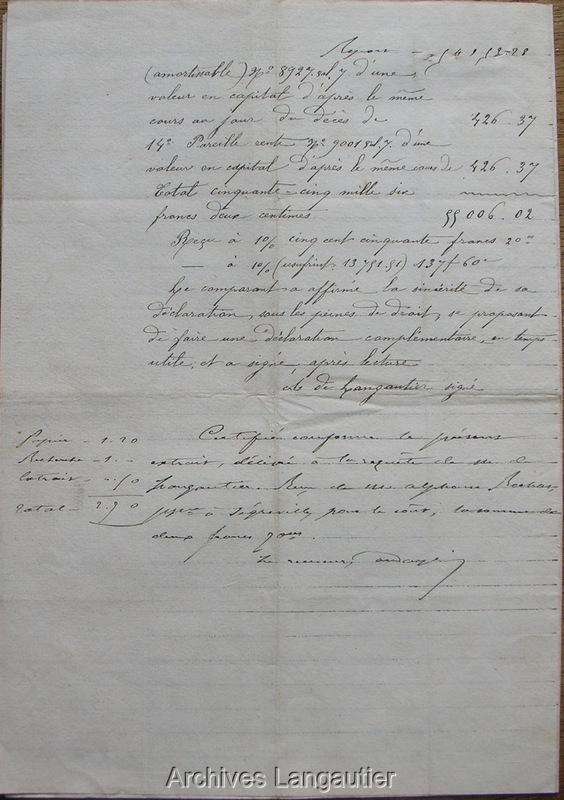 Report — 54153-28
(amortissable) No 8927. sol. 7. d'une
valeur en capital d'après le même
cours au jour du décès de 426.37
14° Pareille rente No 9001 sol. 7. d'une
valeur en capital d'après le même cours de 426.37
Total cinquante-cinq mille six
francs deux centimes 55006.02
Reçu à 1% cinq cent cinquante francs 20
— à 1% (usufruit: 13751.51) 137f 60c
Le comparant a affirmé la sincérité de sa
déclaration, sous les peines de droit, se proposant
de faire une déclaration complémentaire, en temps
utile; et a signé après lecture
de Langautier signé
Certifié conforme le présent
Papier — 1.20
extrait, délivré à la requête de M. de
Recherche — 1. —
Langautier. Reçu de M. Alphonse
Extrait — .50
à pour le coût, la somme de
Total — 2.70
deux francs 70
Le receveur,
Archives Langautier